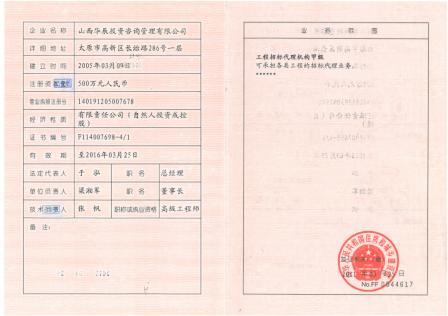 企业名称 山西华辰投资咨询管理有限公司
详细地址 太原市高新区长治路286号一层
建立时间 2005年03月09日
注册资本金 500万元人民币
营业执照注册号 140191205007678
经济性质 有限责任公司(自然人投资或控股)
证书编号 F114007698-4/1
有效期 至2016年03月25日
法定代表人 于泓 职名 总经理
单位负责人 梁湘军 职名 董事长
技术负责人 张帆 职称或执业资格 高级工程师
备注:
业务范围
工程招标代理机构甲级
可承担各类工程的招标代理业务。
******
No.FF 0044617